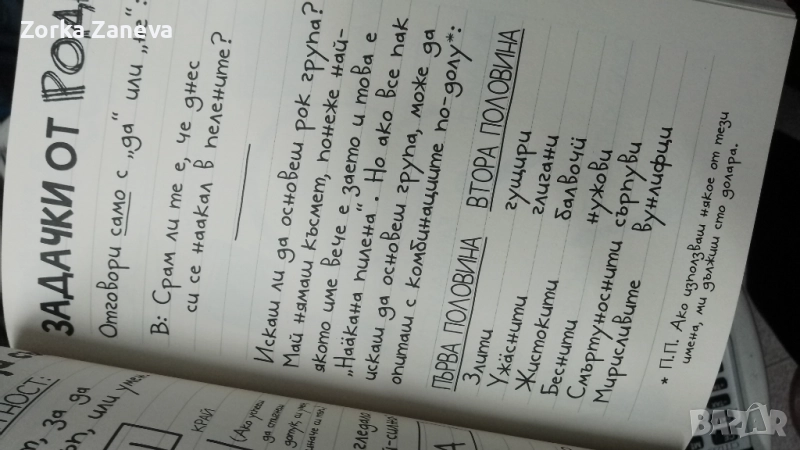 Zorka Zaneva
ЗАДАЧКИ ОТ РОД
Отговори само с „да" или „не":
В: Срам ли те е, че днес
си се наакал в пелените?
Искаш ли да основеш рок група?
Май нямаш късмет, понеже най-
якото име вече е заето и това е
„Наäкана пилена". Но ако все пак
искаш да основеш група, може да
опиташ с комбинациите по-долу*:
ПЪРВА ПОЛОВИНА ВТОРА ПОЛОВИНА
Злити гущири
Ужäснити глигани
Жистокити балвочü
Беснити нужови
Смъртуноснити сърпуви
Мирисливите вунлифци
* П.П. Ако използваш някое от тези
имена, ми дължиш сто долара.
ТНОСТ:
за да
или уме
КРАЙ
(Ако успееш
да
гледало
BAZAR